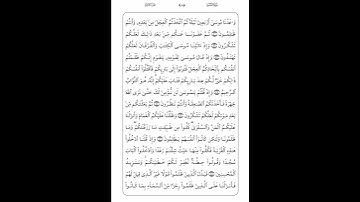 وَٰعَدْنَا مُوسَىٰٓ أَرْبَعِينَ لَيْلَةً ثُمَّ ٱتَّخَذْتُمُ ٱلْعِجْلَ مِنۢ بَعْدِهِۦ وَأَنتُمْ
ظَٰلِمُونَ ثُمَّ عَفَوْنَا عَنكُم مِّنۢ بَعْدِ ذَٰلِكَ لَعَلَّكُمْ
تَشْكُرُونَ وَإِذْ ءَاتَيْنَا مُوسَى ٱلْكِتَٰبَ وَٱلْفُرْقَانَ لَعَلَّكُمْ
تَهْتَدُونَ وَإِذْ قَالَ مُوسَىٰ لِقَوْمِهِۦ يَٰقَوْمِ إِنَّكُمْ ظَلَمْتُمْ
أَنفُسَكُم بِٱتِّخَاذِكُمُ ٱلْعِجْلَ فَتُوبُوٓا۟ إِلَىٰ بَارِئِكُمْ فَٱقْتُلُوٓا۟ أَنفُسَكُمْ
ذَٰلِكُمْ خَيْرٌ لَّكُمْ عِندَ بَارِئِكُمْ فَتَابَ عَلَيْكُمْ إِنَّهُۥ هُوَ ٱلتَّوَّابُ
ٱلرَّحِيمُ وَإِذْ قُلْتُمْ يَٰمُوسَىٰ لَن نُّؤْمِنَ لَكَ حَتَّىٰ نَرَى ٱللَّهَ
جَهْرَةً فَأَخَذَتْكُمُ ٱلصَّٰعِقَةُ وَأَنتُمْ تَنظُرُونَ ثُمَّ بَعَثْنَٰكُم مِّنۢ
بَعْدِ مَوْتِكُمْ لَعَلَّكُمْ تَشْكُرُونَ وَظَلَّلْنَا عَلَيْكُمُ ٱلْغَمَامَ وَأَنزَلْنَا
عَلَيْكُمُ ٱلْمَنَّ وَٱلسَّلْوَىٰ كُلُوا۟ مِن طَيِّبَٰتِ مَا رَزَقْنَٰكُمْ وَمَا
ظَلَمُونَا وَلَٰكِن كَانُوٓا۟ أَنفُسَهُمْ يَظْلِمُونَ وَإِذْ قُلْنَا ٱدْخُلُوا۟
هَٰذِهِ ٱلْقَرْيَةَ فَكُلُوا۟ مِنْهَا حَيْثُ شِئْتُمْ رَغَدًا وَٱدْخُلُوا۟ ٱلْبَابَ
سُجَّدًا وَقُولُوا۟ حِطَّةٌ نَّغْفِرْ لَكُمْ خَطَٰيَٰكُمْ وَسَنَزِيدُ
ٱلْمُحْسِنِينَ فَبَدَّلَ ٱلَّذِينَ ظَلَمُوا۟ قَوْلًا غَيْرَ ٱلَّذِى قِيلَ لَهُمْ
فَأَنزَلْنَا عَلَى ٱلَّذِينَ ظَلَمُوا۟ رِجْزًا مِّنَ ٱلسَّمَآءِ بِمَا كَانُوا۟